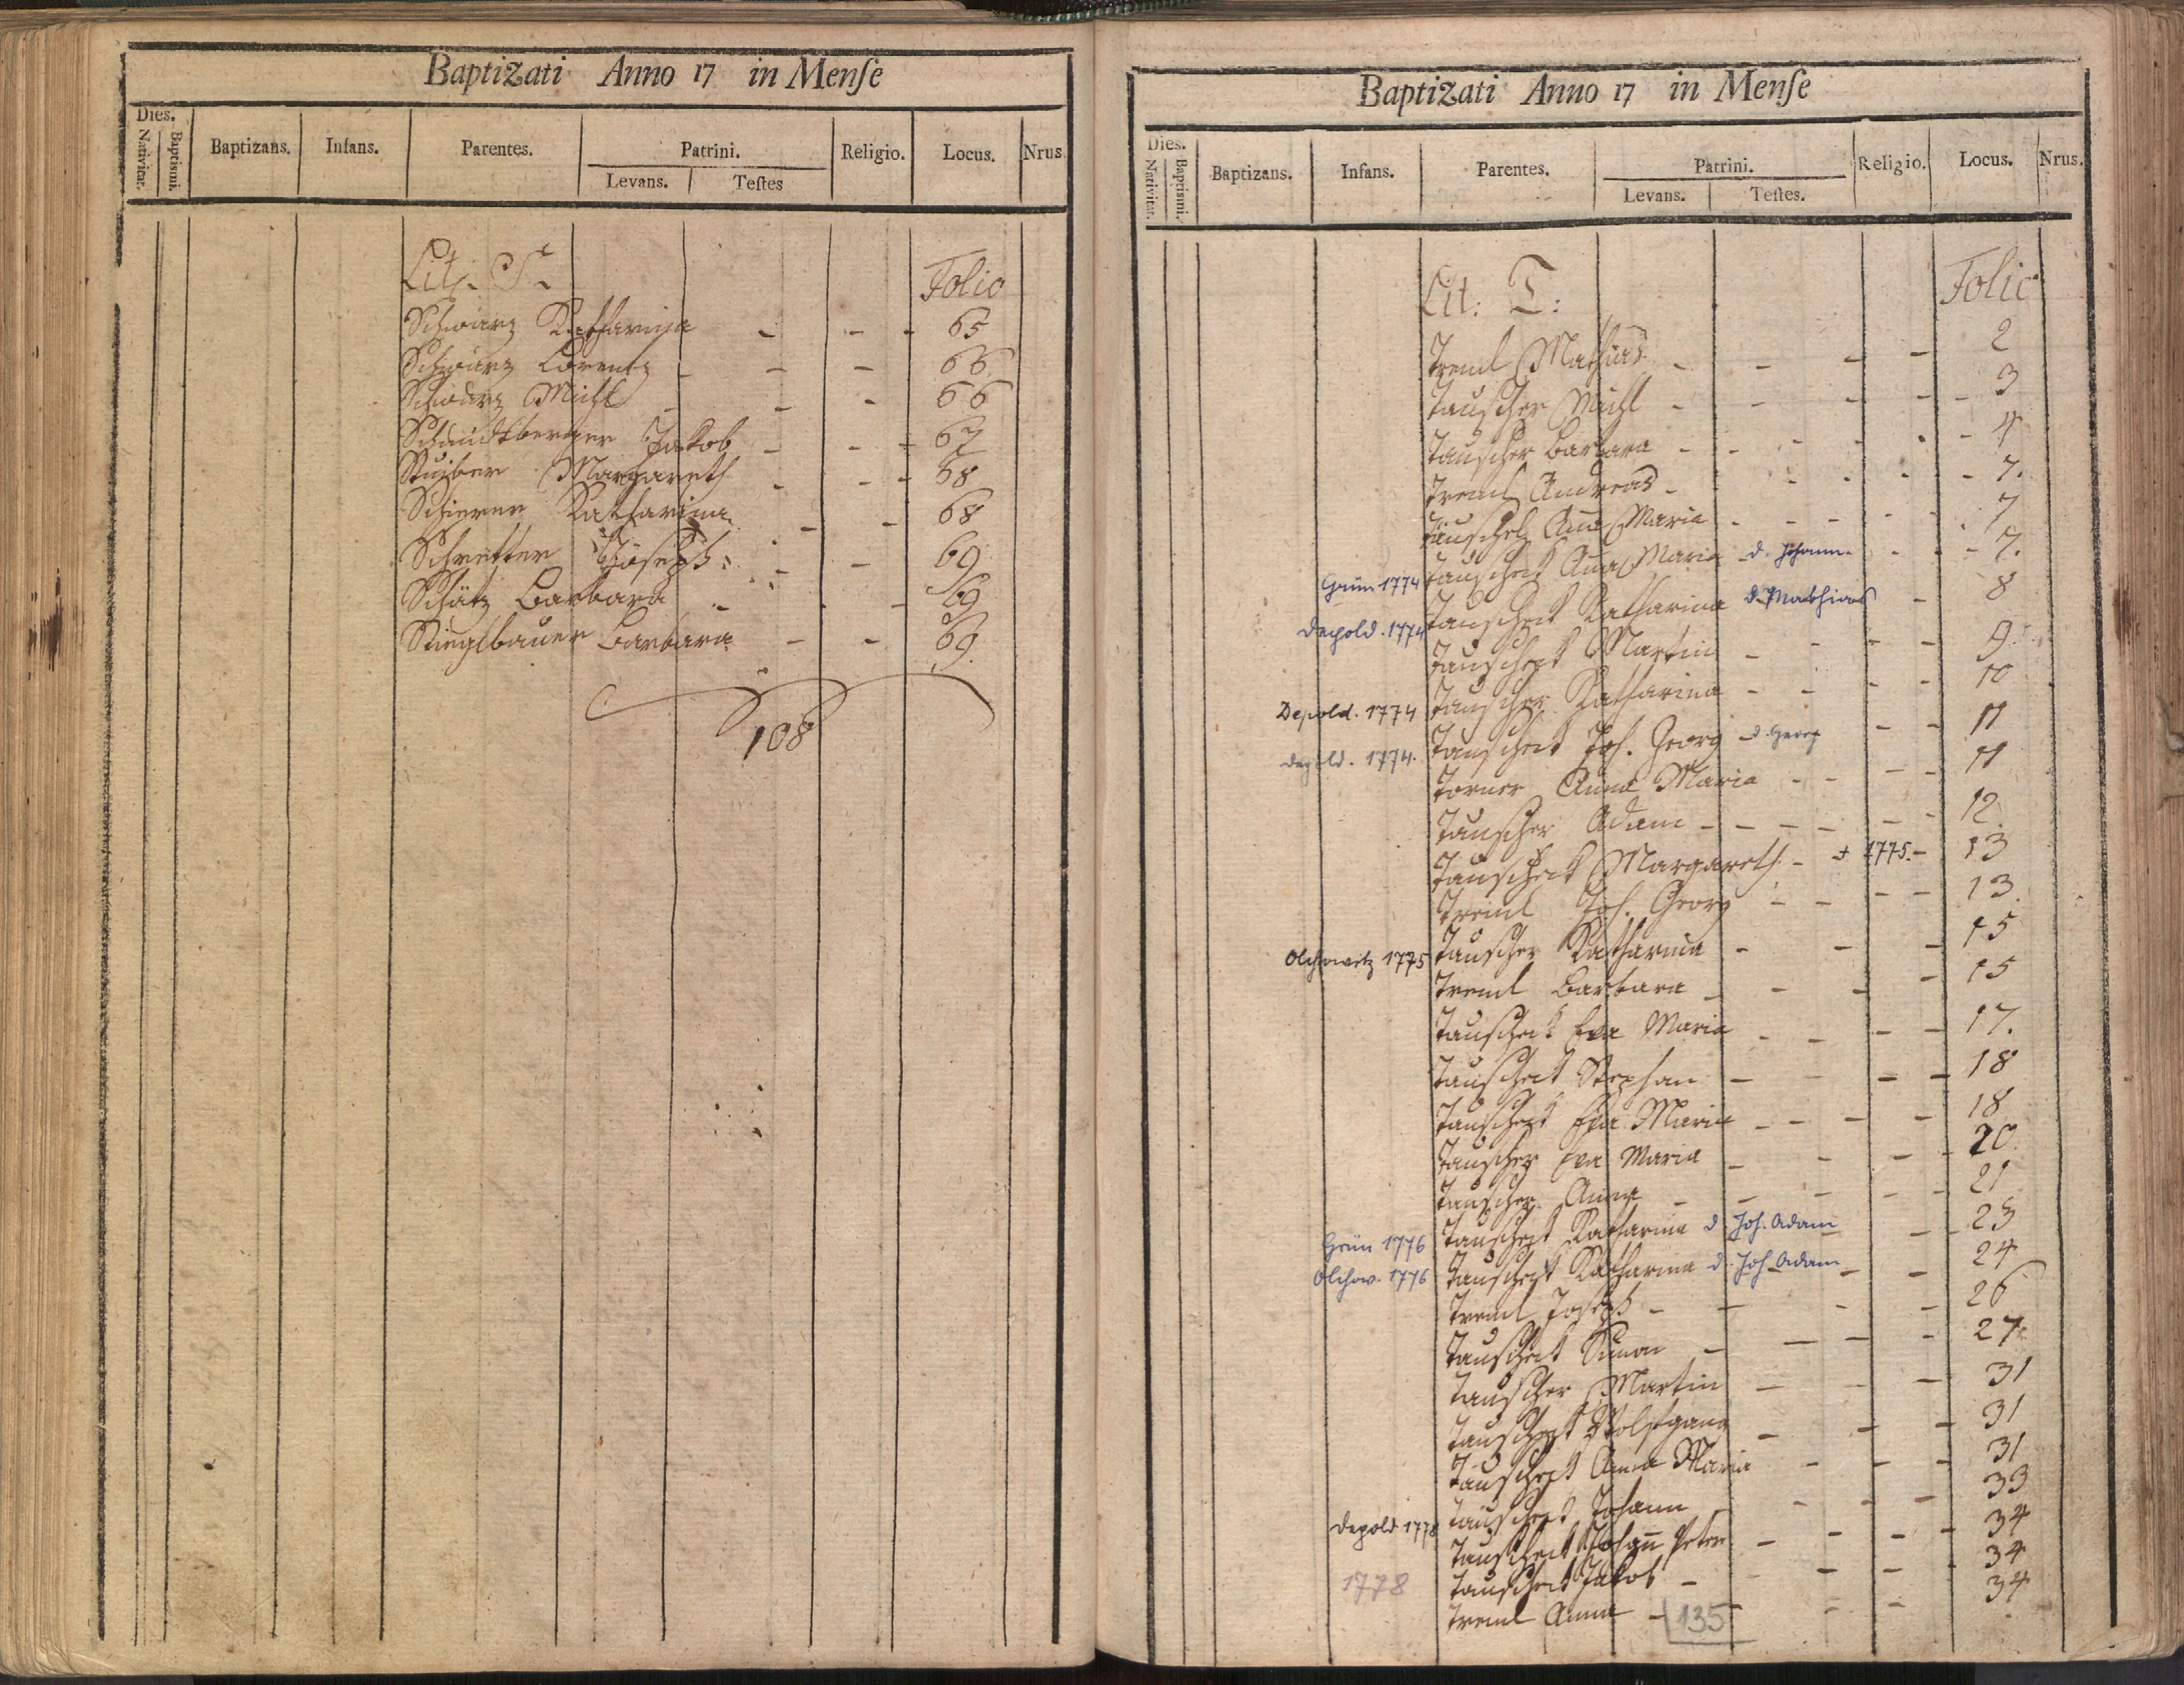 Baptizati Anno 17 in Menſe
Dies. Nativitat. Baptismi. Baptizans. Infans. Parentes. Patrini. Levans. Teſtes Religio. Locus. Nrus
Lit: S. Folio
Schwarz Katharina - - - 65
Schwarz Lorentz - - - 66
Schwarz Michl - - - 66
Schmidtberger Jakob - - - 67
Stuiber Margareth - - - 68
Schierer Katharina - - 68
Schretter Joseph - - 69
Schätz Barbara - - 69
Stieglbauer Barbara - - 69
108
Baptizati Anno 17 in Menſe
Dies. Nativitat. Baptismi. Baptizans. Infans. Parentes. Patrini. Levans. Teſtes. Religio. Locus. Nrus.
Lit: T: Folio
Treml Mathias - - - - 2
Tauscher Michl - - - - 3
Tauscher Barbara - - - - 4
Treml Andreas - - - - 7.
Anna Maria - - - - 7
Grün 1774 Tauscheck Anna Maria d. Johann - - 7.
Depold. 1774 Tauscheck Katharina d. Mathias - 8
Tauscheck Martin - - - - 9.
Depold. 1774 Tauscher Katharina - - - - 10
Depold. 1774. Tauscheck Joh. Georg d. Georg - - 11
Torner Anna Maria - - - - 11
Tauscher Adam - - - - 12.
Tauscheck Margareth - + 1775. - 13
Treml Joh. Georg - - - - 13.
Olchowitz 1775 Tauscher Katharina - - - 15
Treml Barbara - - - - 15
Tauscheck Eva Maria - - - - 17.
Tauscheck Stephan - - - - 18
Tauscheck Eva Maria - - - - 18
Tauscher Eva Maria - - - - 20.
Tauscher Anna - - - - 21
Grün 1776 Tauscheck Katharina d. Joh. Adam - - 23
Olchow. 1776 Tauscheck Katharina d. Joh. Adam - - 24
Treml Joseph - - - - 26
Tauscheck Simon - - - - 27.
Tauscher Martin - - - 31
Tauscheck Wolfgang - - - 31
Tauscheck Anna Maria - - - 31
Tauscheck Johann - - - - 33
Depold 1778 Tauscheck Johann Peter - - - - 34
1778 Tauscheck Jakob - - - - 34
Treml Anna - 135 - - 34